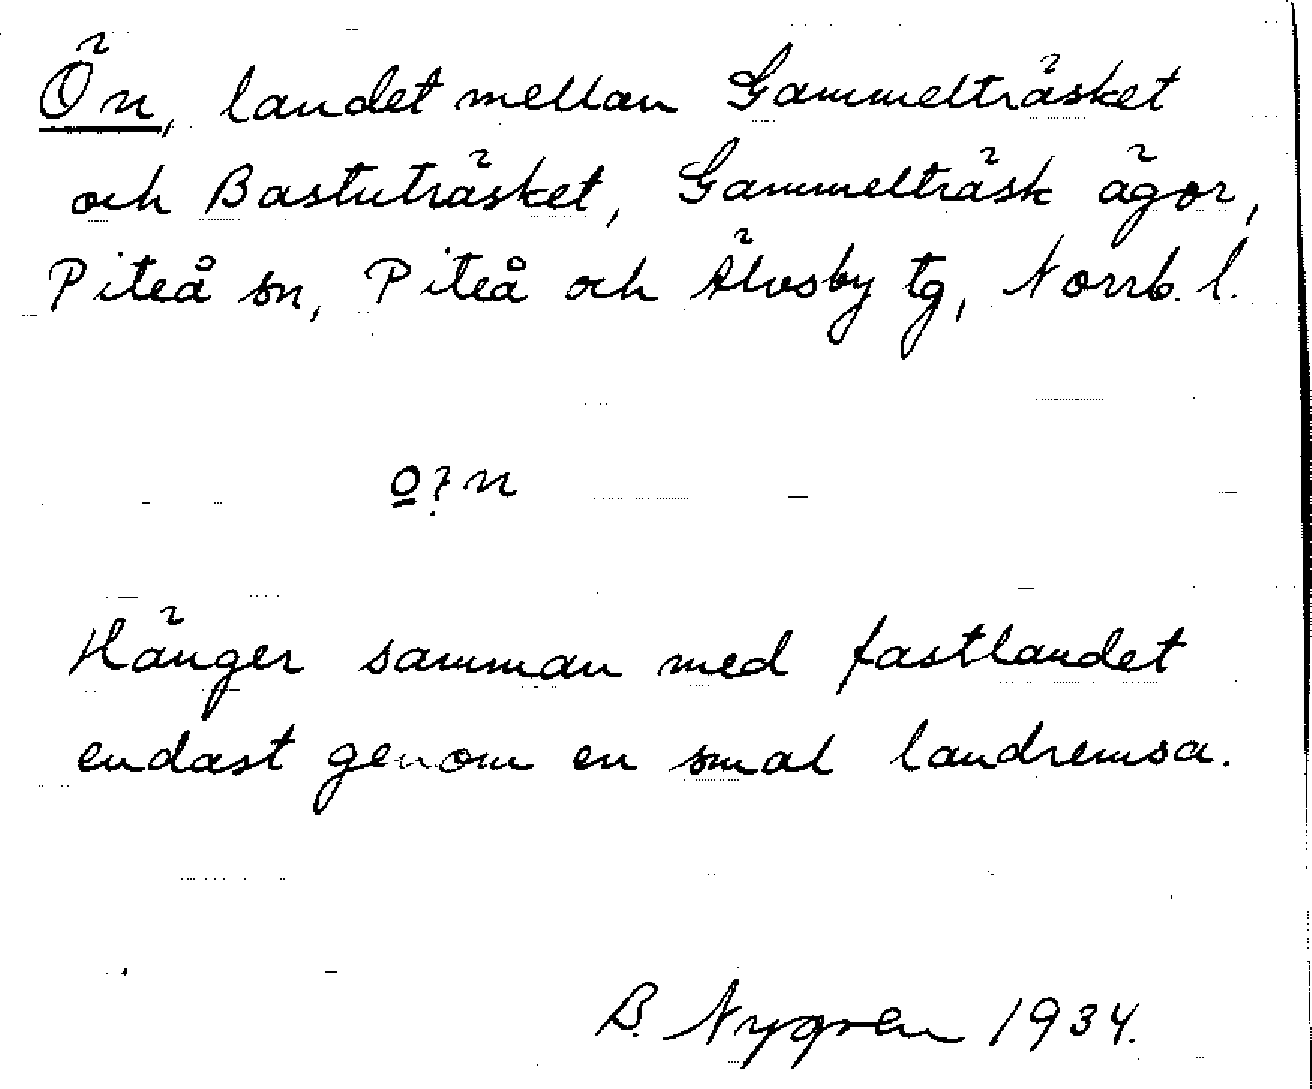 Ön, landet mellan Gammelträsket
och Bastuträsket, Gammelträsk ägor,
Piteå sn, Piteå och Älvsby tg, Norrb. l.
o̲?n
Hänger samman med fastlandet
endast genom en smal landremsa.
B. Nygren 1934.